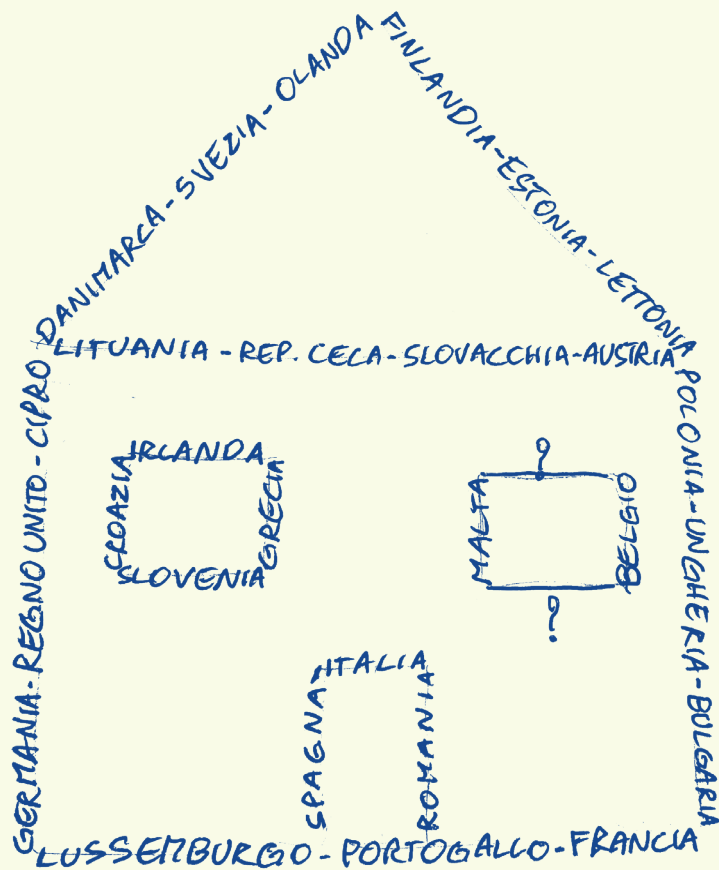 DANIMARCA - SVEZIA - OLANDA
FINLANDIA - ESTONIA - LETTONIA
LITUANIA - REP. CECA - SLOVACCHIA - AUSTRIA
GERMANIA - REGNO UNITO - CIPRO
POLONIA - UNGHERIA - BULGARIA
IRLANDA
CROAZIA
GRECIA
SLOVENIA
?
MALTA
BELGIO
?
ITALIA
SPAGNA
ROMANIA
LUSSEMBURGO - PORTOGALLO - FRANCIA